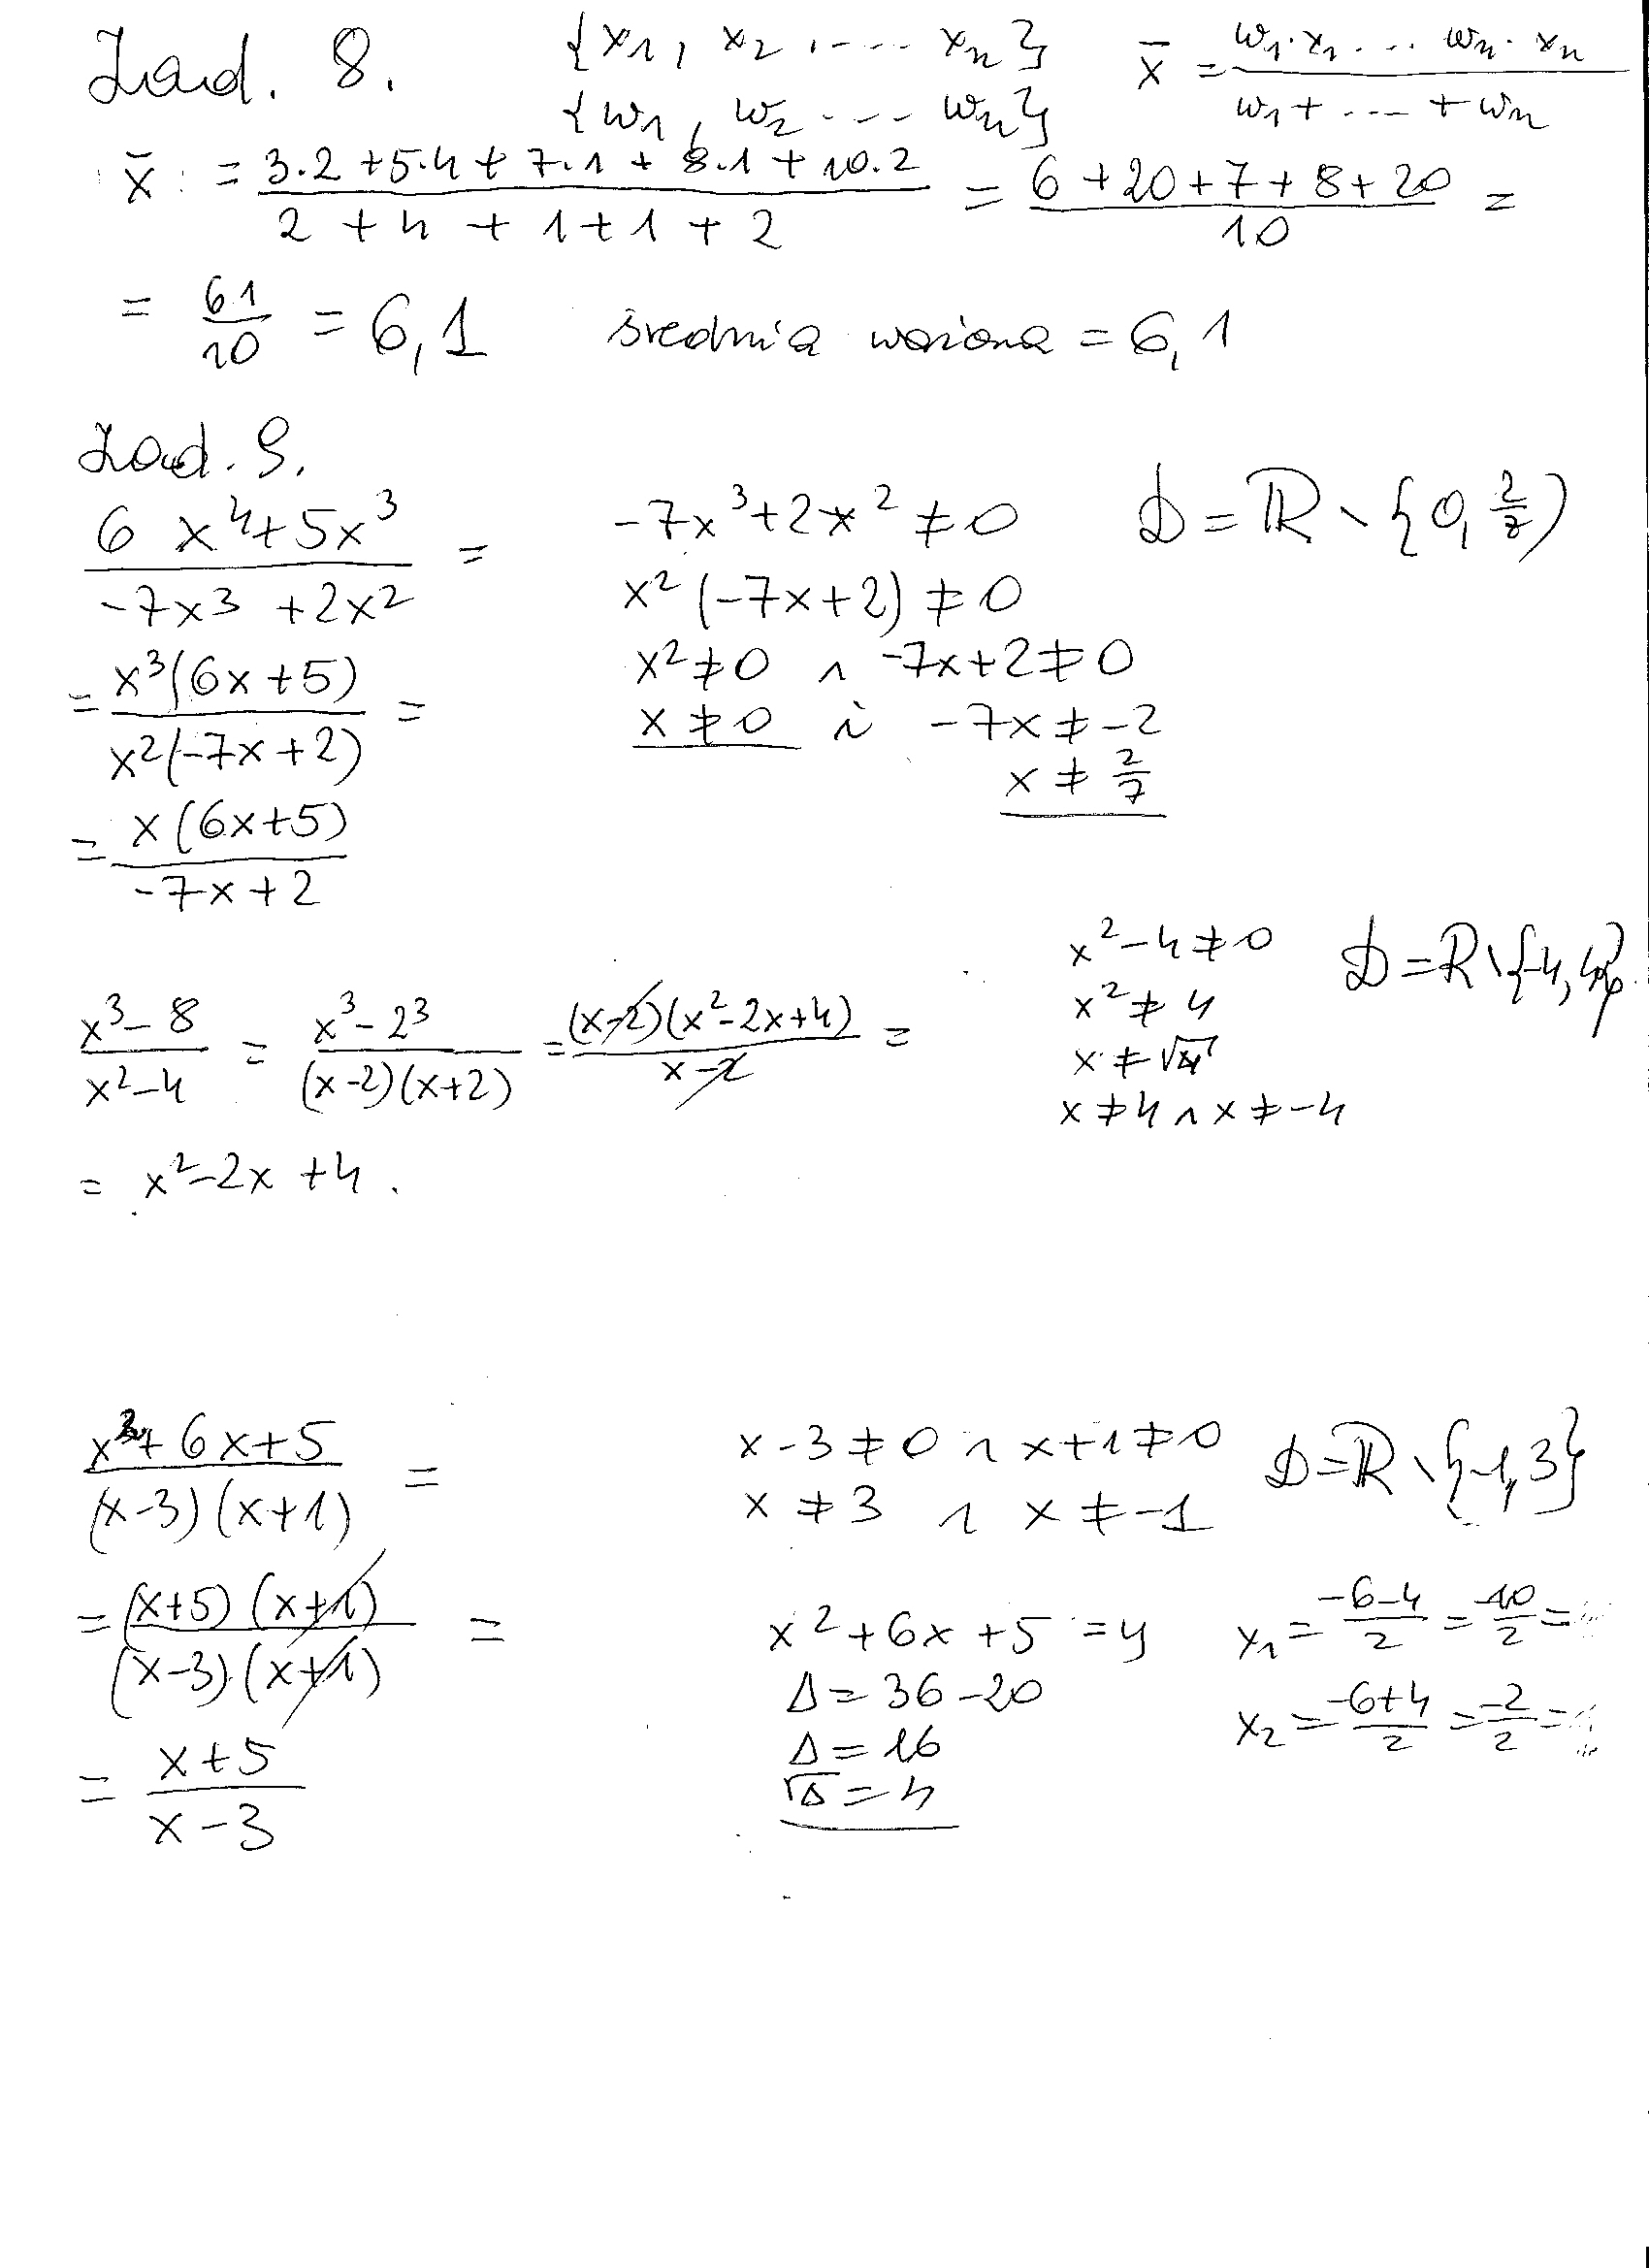 Zad. 8. {x₁, x₂, .... xₙ} x̄ = (w₁·x₁ ... wₙ·xₙ)/(w₁ + .... + wₙ)
{w₁, w₂ .... wₙ}
x̄ = (3·2 + 5·4 + 7·1 + 8·1 + 10·2)/(2 + 4 + 1 + 1 + 2) = (6 + 20 + 7 + 8 + 20)/10 =
= 61/10 = 6,1 średnia ważona = 6,1
Zad. 9.
(6x⁴ + 5x³)/(-7x³ + 2x²) =
= x³(6x + 5)/x²(-7x + 2) =
= x(6x + 5)/(-7x + 2)
-7x³ + 2x² ≠ 0 D = ℝ \ {0, 2/7)
x²(-7x + 2) ≠ 0
x² ≠ 0 ∧ -7x + 2 ≠ 0
x ≠ 0 i -7x ≠ -2
x ≠ 2/7
(x³ - 8)/(x² - 4) = (x³ - 2³)/(x - 2)(x + 2) = (x - 2)(x² - 2x + 4)/(x - 2) =
= x² - 2x + 4.
x² - 4 ≠ 0 D = R \ {-4, 4}
x² ≠ 4
x ≠ √4
x ≠ 4 ∧ x ≠ -4
(x² + 6x + 5)/(x - 3)(x + 1) =
= (x + 5)(x + 1)/(x - 3)(x + 1) =
= (x + 5)/(x - 3)
x - 3 ≠ 0 ∧ x + 1 ≠ 0 D = ℝ \ {-1, 3}
x ≠ 3 ∧ x ≠ -1
x² + 6x + 5 = y
Δ = 36 - 20
Δ = 16
√Δ = 4
x₁ = (-6 - 4)/2 = -10/2 =
x₂ = (-6 + 4)/2 = -2/2 =